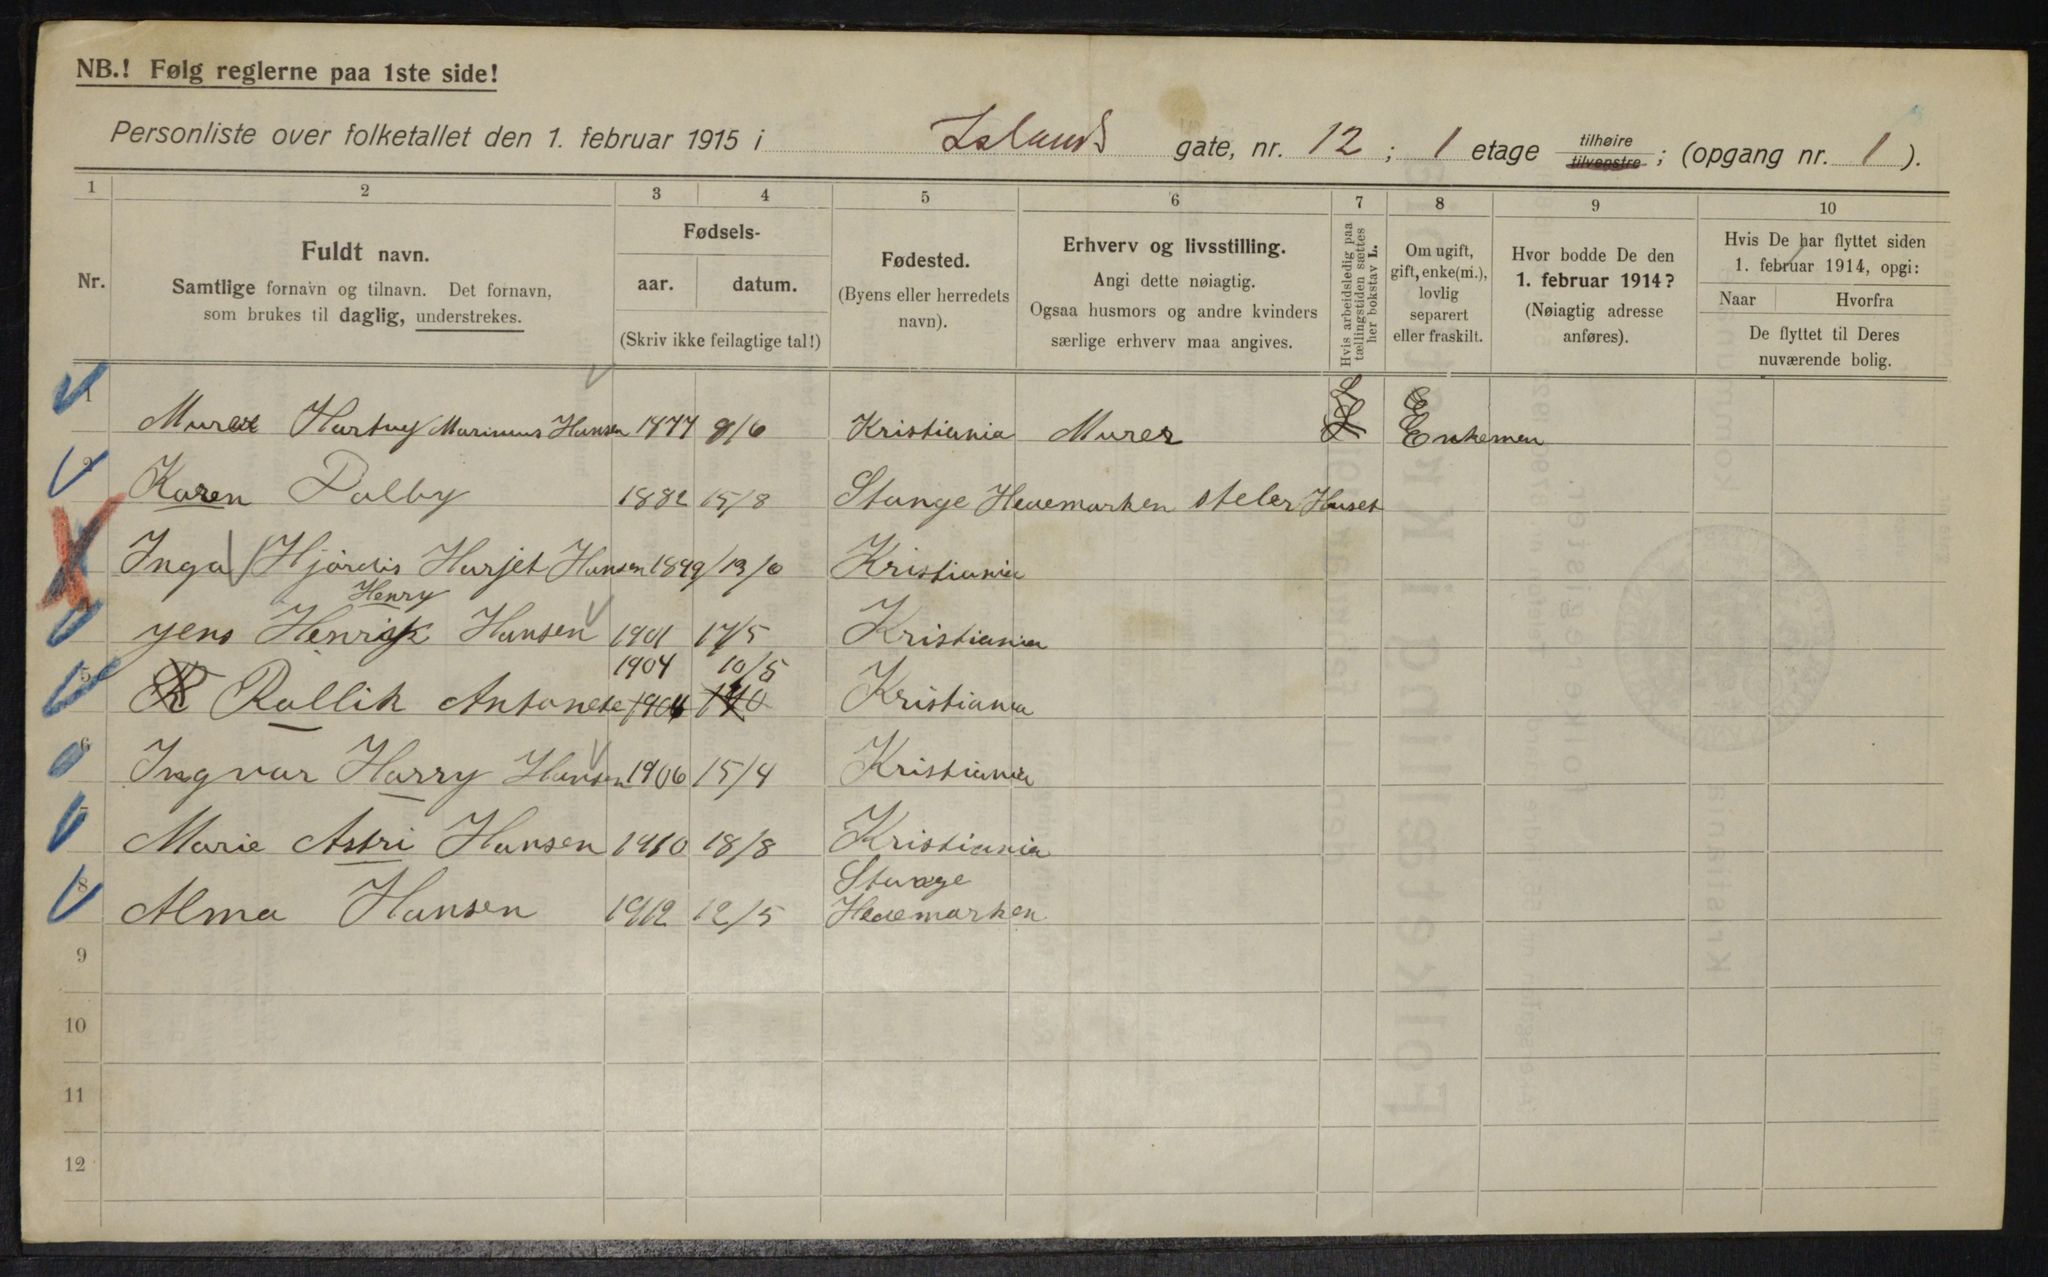 NB.! Følg reglerne paa 1ste side!
Personliste over folketallet den 1. februar 1915 i Islands gate, nr. 12 ; 1 etage tilhøire tilvenstre ; (opgang nr. 1 ).
1 2 3 4 5 6 7 8 9 10
Nr.
Fuldt navn.
Samtlige fornavn og tilnavn. Det fornavn,
som brukes til daglig, understrekes.
Fødsels-
aar. datum.
(Skriv ikke feilagtige tal!)
Fødested.
(Byens eller herredets
navn).
Erhverv og livsstilling.
Angi dette nøiagtig.
Ogsaa husmors og andre kvinders
særlige erhverv maa angives.
Hvis arbeidsledig paa
tællingstiden sættes
her bokstav L.
Om ugift,
gift, enke(m.),
lovlig
separert
eller fraskilt.
Hvor bodde De den
1. februar 1914?
(Nøiagtig adresse
anføres).
Hvis De har flyttet siden
1. februar 1914, opgi:
Naar Hvorfra
De flyttet til Deres
nuværende bolig.
1 Hartvy Marinius Hansen 1877 8/6 Kristiania Murer L E Enkeman
2 Karen Dalby 1882 15/8 Stange Hedemarken steler Huset
Inga Hjördis Harjet Hansen 1899 13/6 Kristiania
Henry
yens Henrik Hansen 1901 17/5 Kristiania
1904 10/5
5 R Rollik Antonete Kristiania
6 Ingvar Harry Hansen 1906 15/4 Kristiania
7 Marie Astri Hansen 1910 18/8 Kristiania
Stange
8 Alma Hansen 1912 12/5 Hedemarken
9
10
11
12